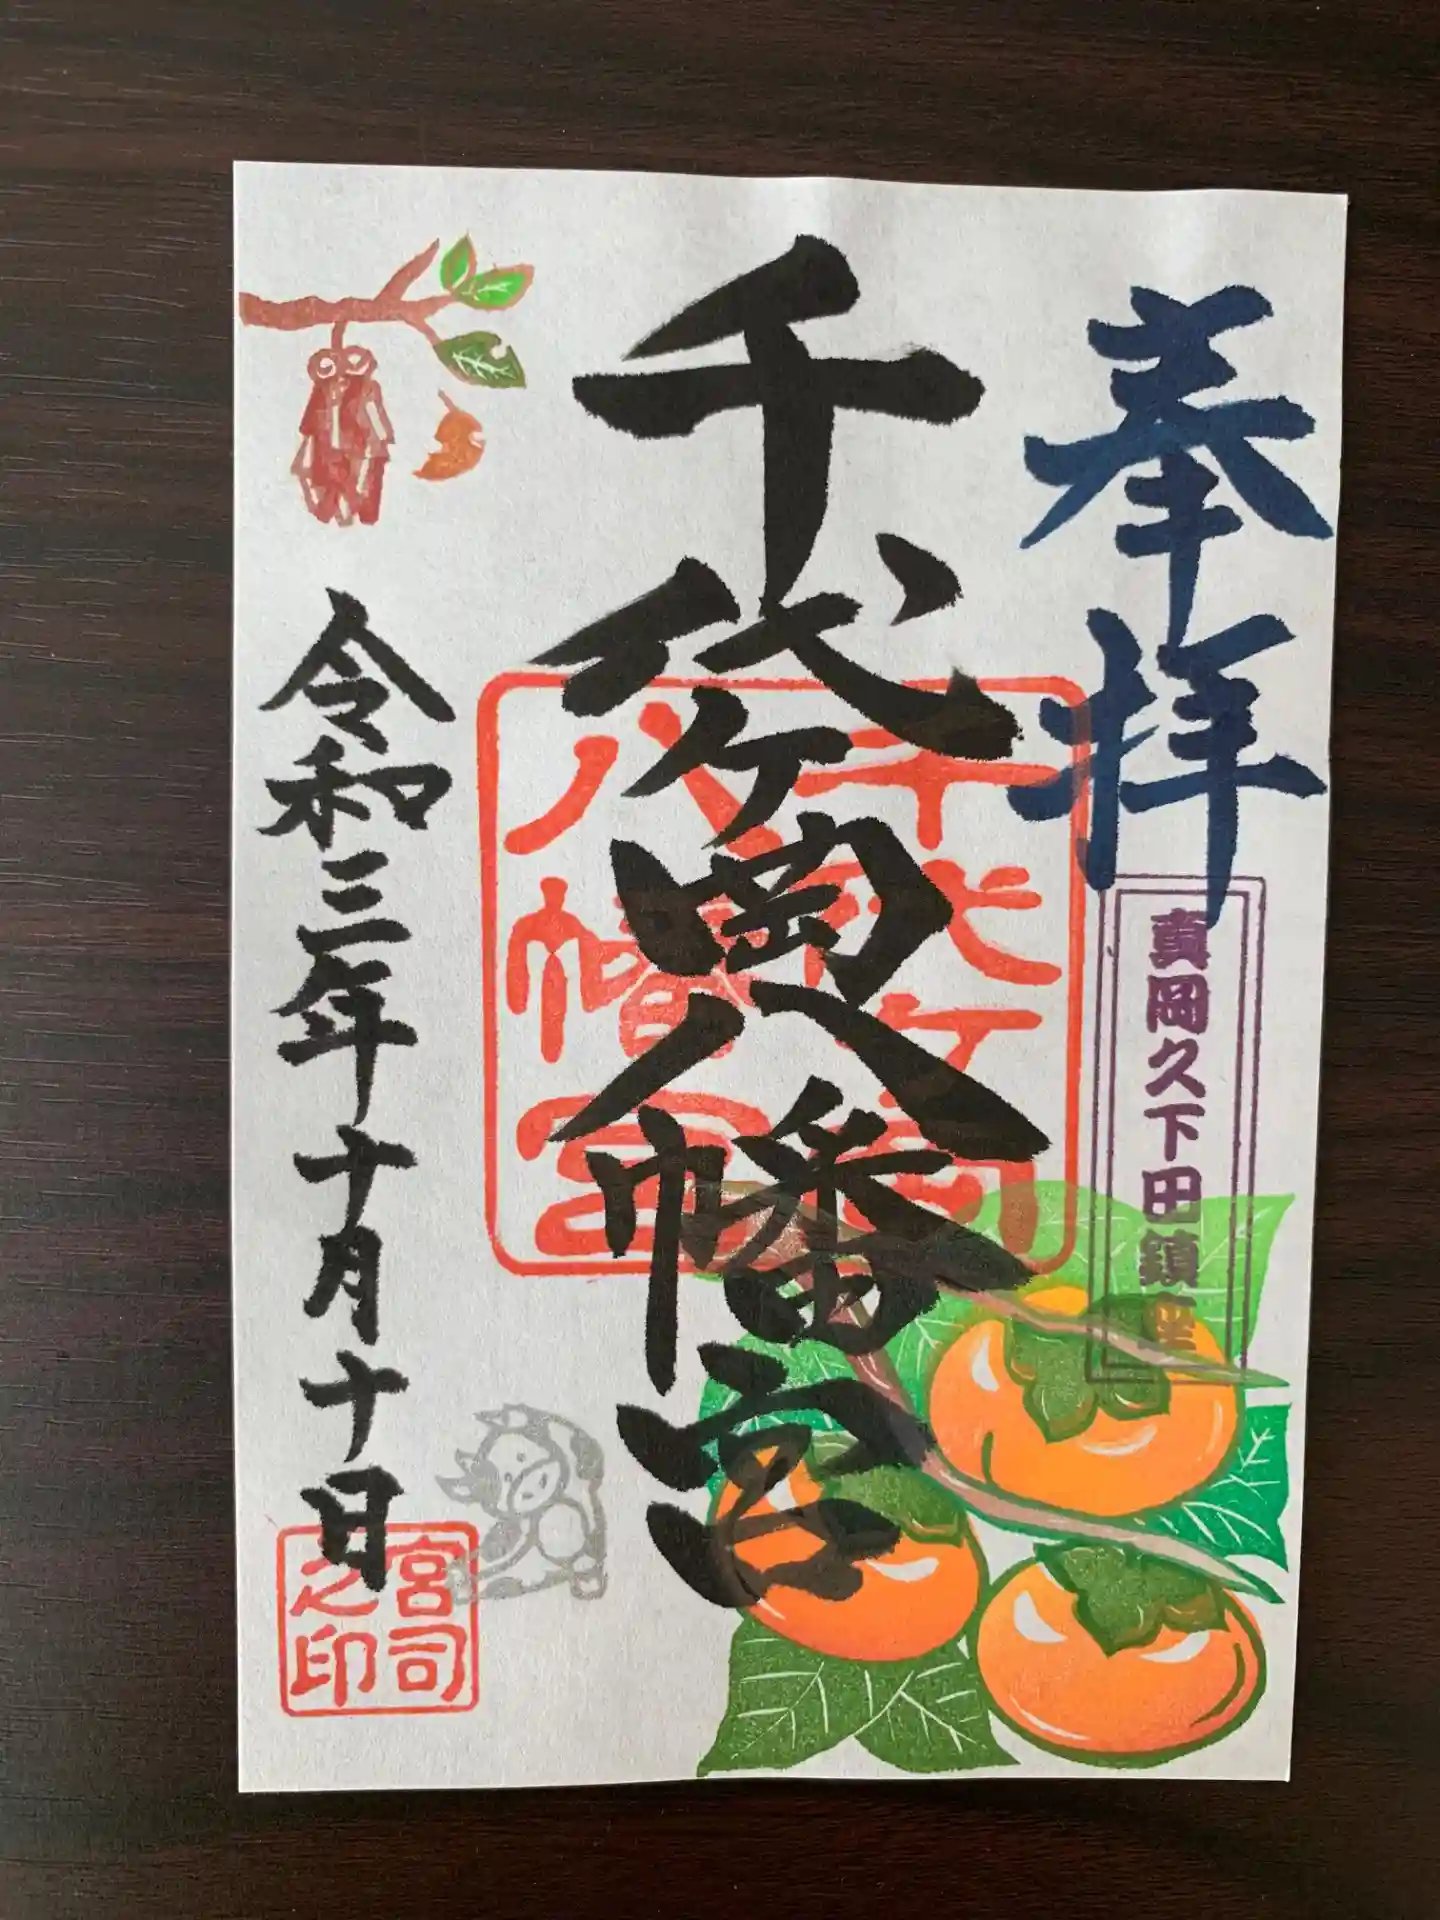 奉拝
真岡久下田鎮座
千代ヶ岡八幡宮
千代ヶ岡
八幡宮
令和三年十月十日
宮司
之印